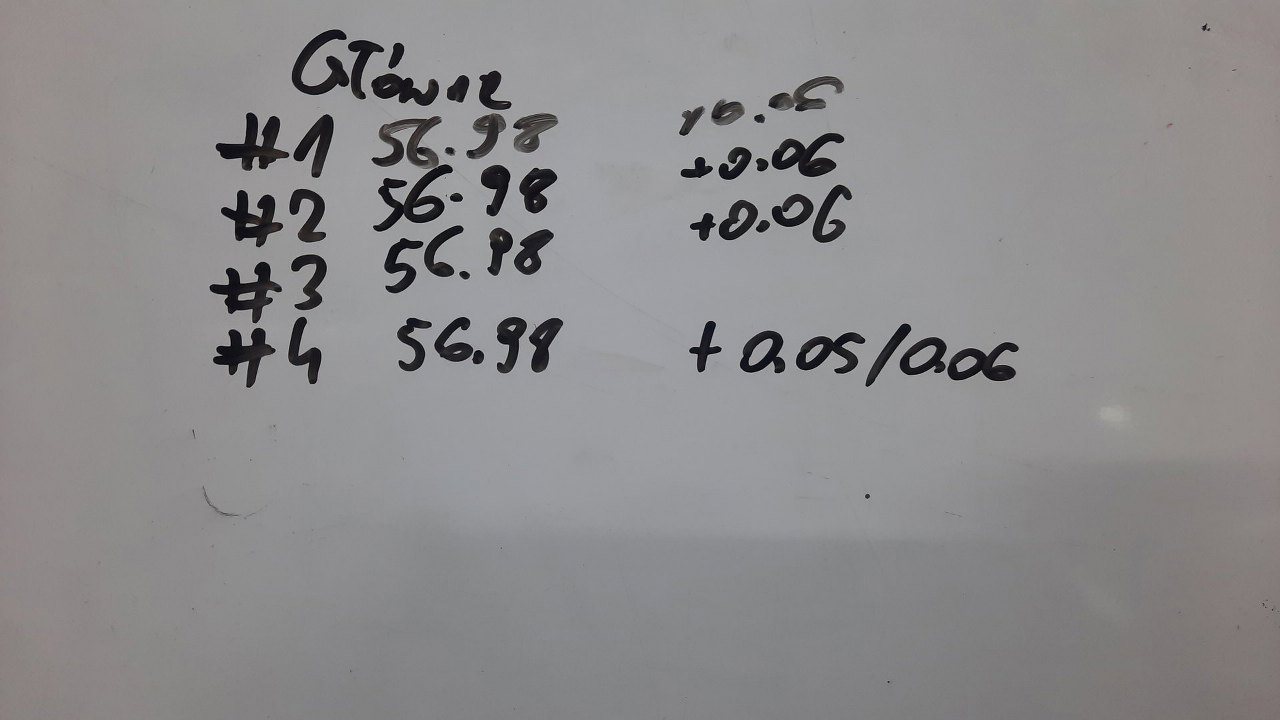 Główne
#1 56.98 +0.06
#2 56.98 +0.06
#3 56.98 +0.06
#4 56.98 +0.05/0.06